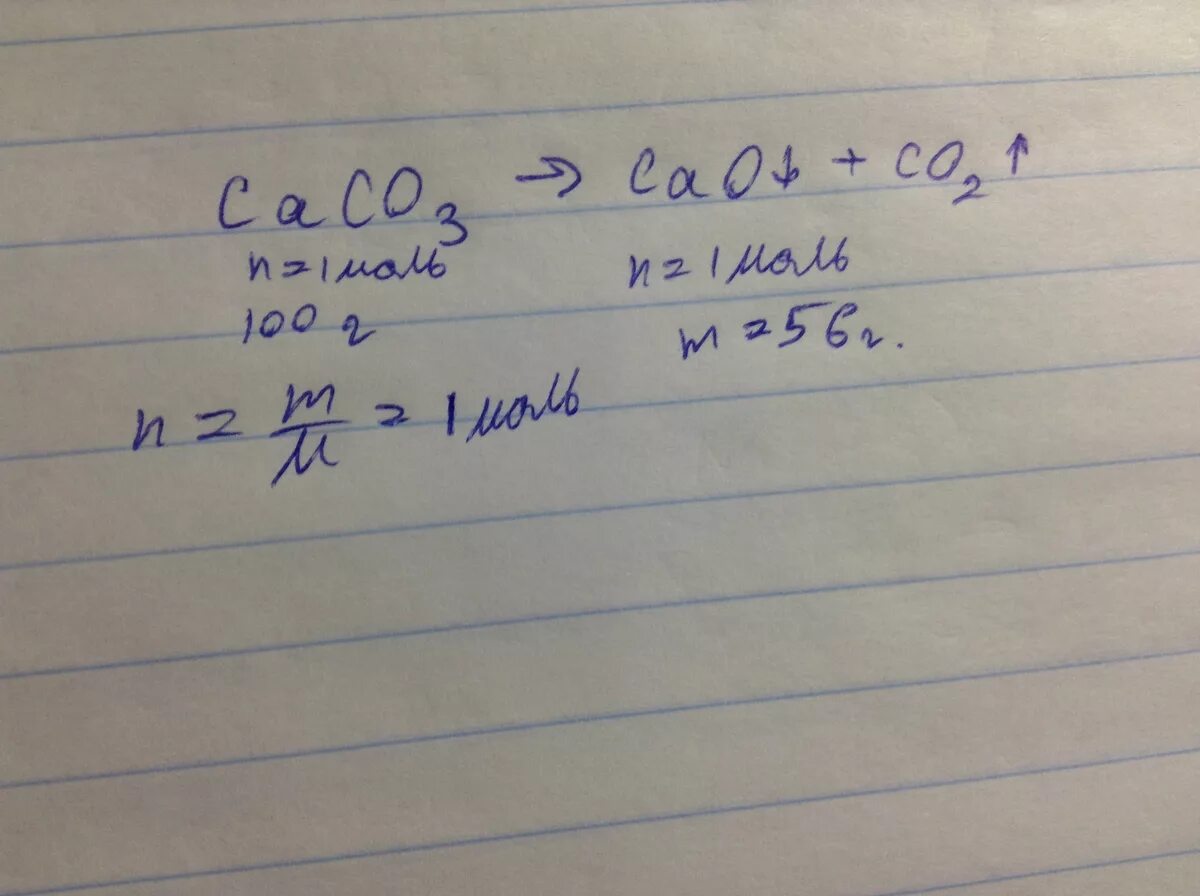 CaCO₃ → CaO↓ + CO₂↑
n = 1 моль n = 1 моль
100 г m = 56 г.
n = m/M = 1 моль